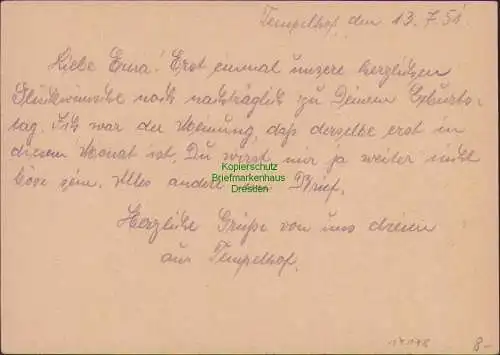 Tempelhof, den 13.7.51
Liebe Erna! Erst einmal unsere herzlichen
Glückwünsche noch nachträglich zu Deinem Geburts-
tag. Ich war der Meinung, daß derselbe erst in
diesem Monat ist. Du wirst mir ja weiter nicht
böse sein. Alles andere im Brief.
Herzliche Grüße von uns dreien
aus Tempelhof.
Kopierschutz
Briefmarkenhaus
Dresden
8-